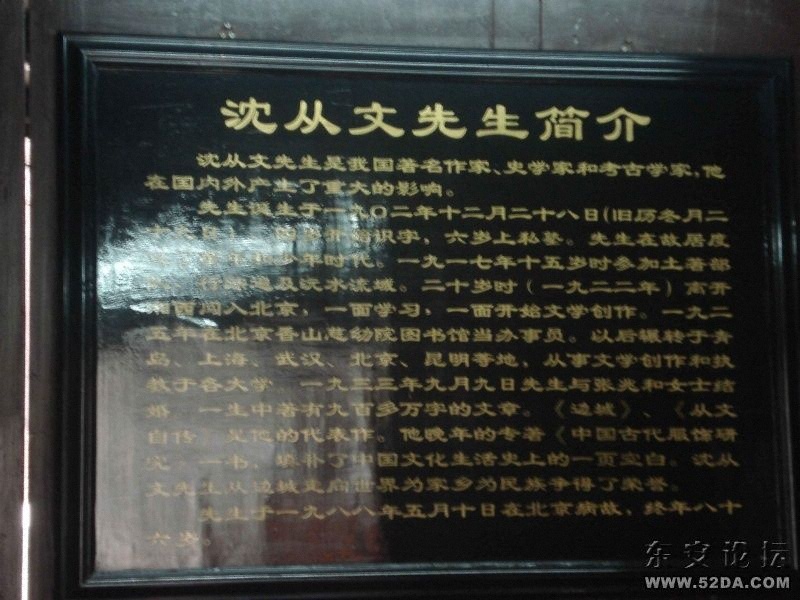 沈从文先生简介
沈从文先生是我国著名作家、史学家和考古学家,他
在国内外产生了重大的影响。
先生诞生于一九〇二年十二月二十八日(旧历冬月二
识字，六岁上私塾。先生在故居度
少年时代。一九一七年十五岁时参加土著部
及沅水流域。二十岁时（一九二二年）离开
湘西闯入北京，一面学习，一面开始文学创作。一九二
五年在北京香山慈幼院图书馆当办事员。以后辗转于青
岛、上海、武汉、北京、昆明等地，从事文学创作和执
教于各大学 一九三三年九月九日先生与张兆和女士结
婚 一生中著有九百多万字的文章。《边城》、《从文
自传》是他的代表作。他晚年的专著《中国古代服饰研
究 一书，填补了中国文化生活史上的一页空白。沈从
文先生从边城走向世界为家乡为民族争得了荣誉。
先生于一九八八年五月十日在北京病故，终年八十
六岁。
东安论坛
WWW.52DA.COM